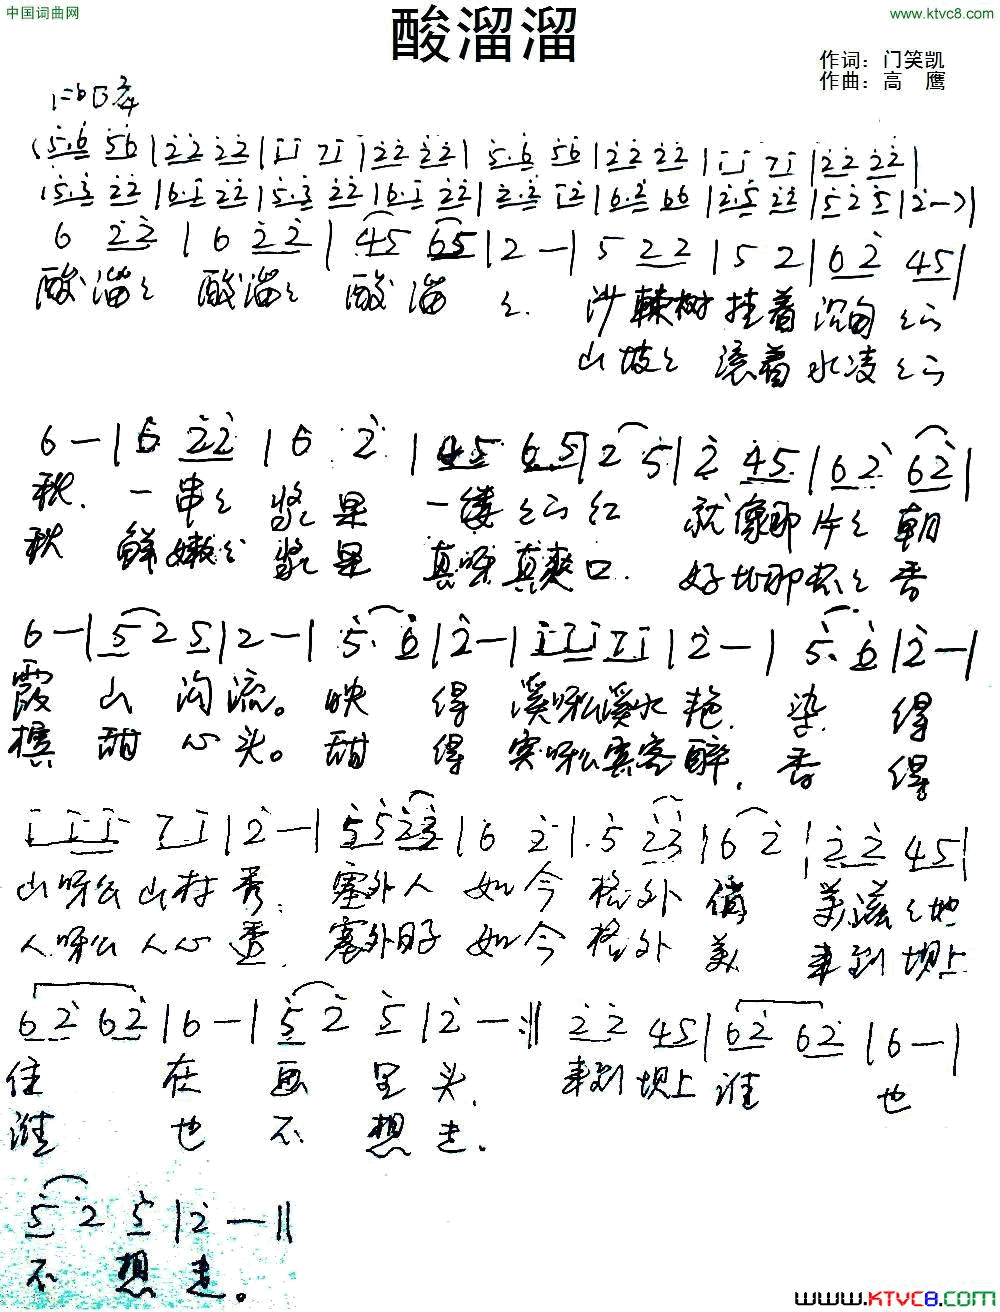 中国词曲网
www.ktvc8.com
酸溜溜
作词：门笑凯
作曲：高 鹰
1=bB 2/4
(5.6 56|22 22|11 71|22 22|5.6 56|22 22|11 71|22 22|
5.3 22|6.1 22|5.3 22|6.1 22|2.2 12|6.2 66|2.5 22|5 2 5|2-)|
6 22|6 22|45 65|2-|5 22|5 2|62 45|
酸溜々 酸溜々 酸溜々. 沙棘树挂着沉甸々
山坡々滚着水凌々
6-|6 22|6 2|45 65|2 5|2 45|62 62|
秋. 一串々浆果 一缕々红 就像那片々朝
秋 鲜嫩々浆果 真呀真爽口. 好比那杯々香
6-|5 2 5|2-|5. 6|2-|111 71|2-|5. 6|2-|
霞山沟流。映得溪呀么溪水艳. 染得
槟甜心头。甜得宾呀么宾客醉, 香得
111 71|2-|5523|6 2|5 23|6 2|22 45|
山呀么山村秀; 塞外人如今格外俏 美滋々地
人呀么人心透. 塞外日子如今格外美 来到坝上
62 62|6-|5 2 5|2-:||22 45|62 62|6-|
住在画里头. 来到坝上谁也
谁也不想走.
5 2 5|2-||
不想走。
www.KTVC8.com